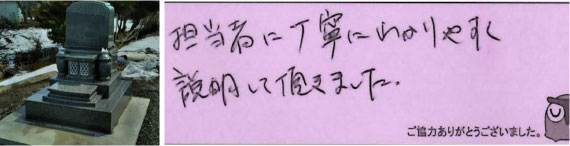 担当者に丁寧にわかりやすく
説明して頂きました.
ご協力ありがとうございました。